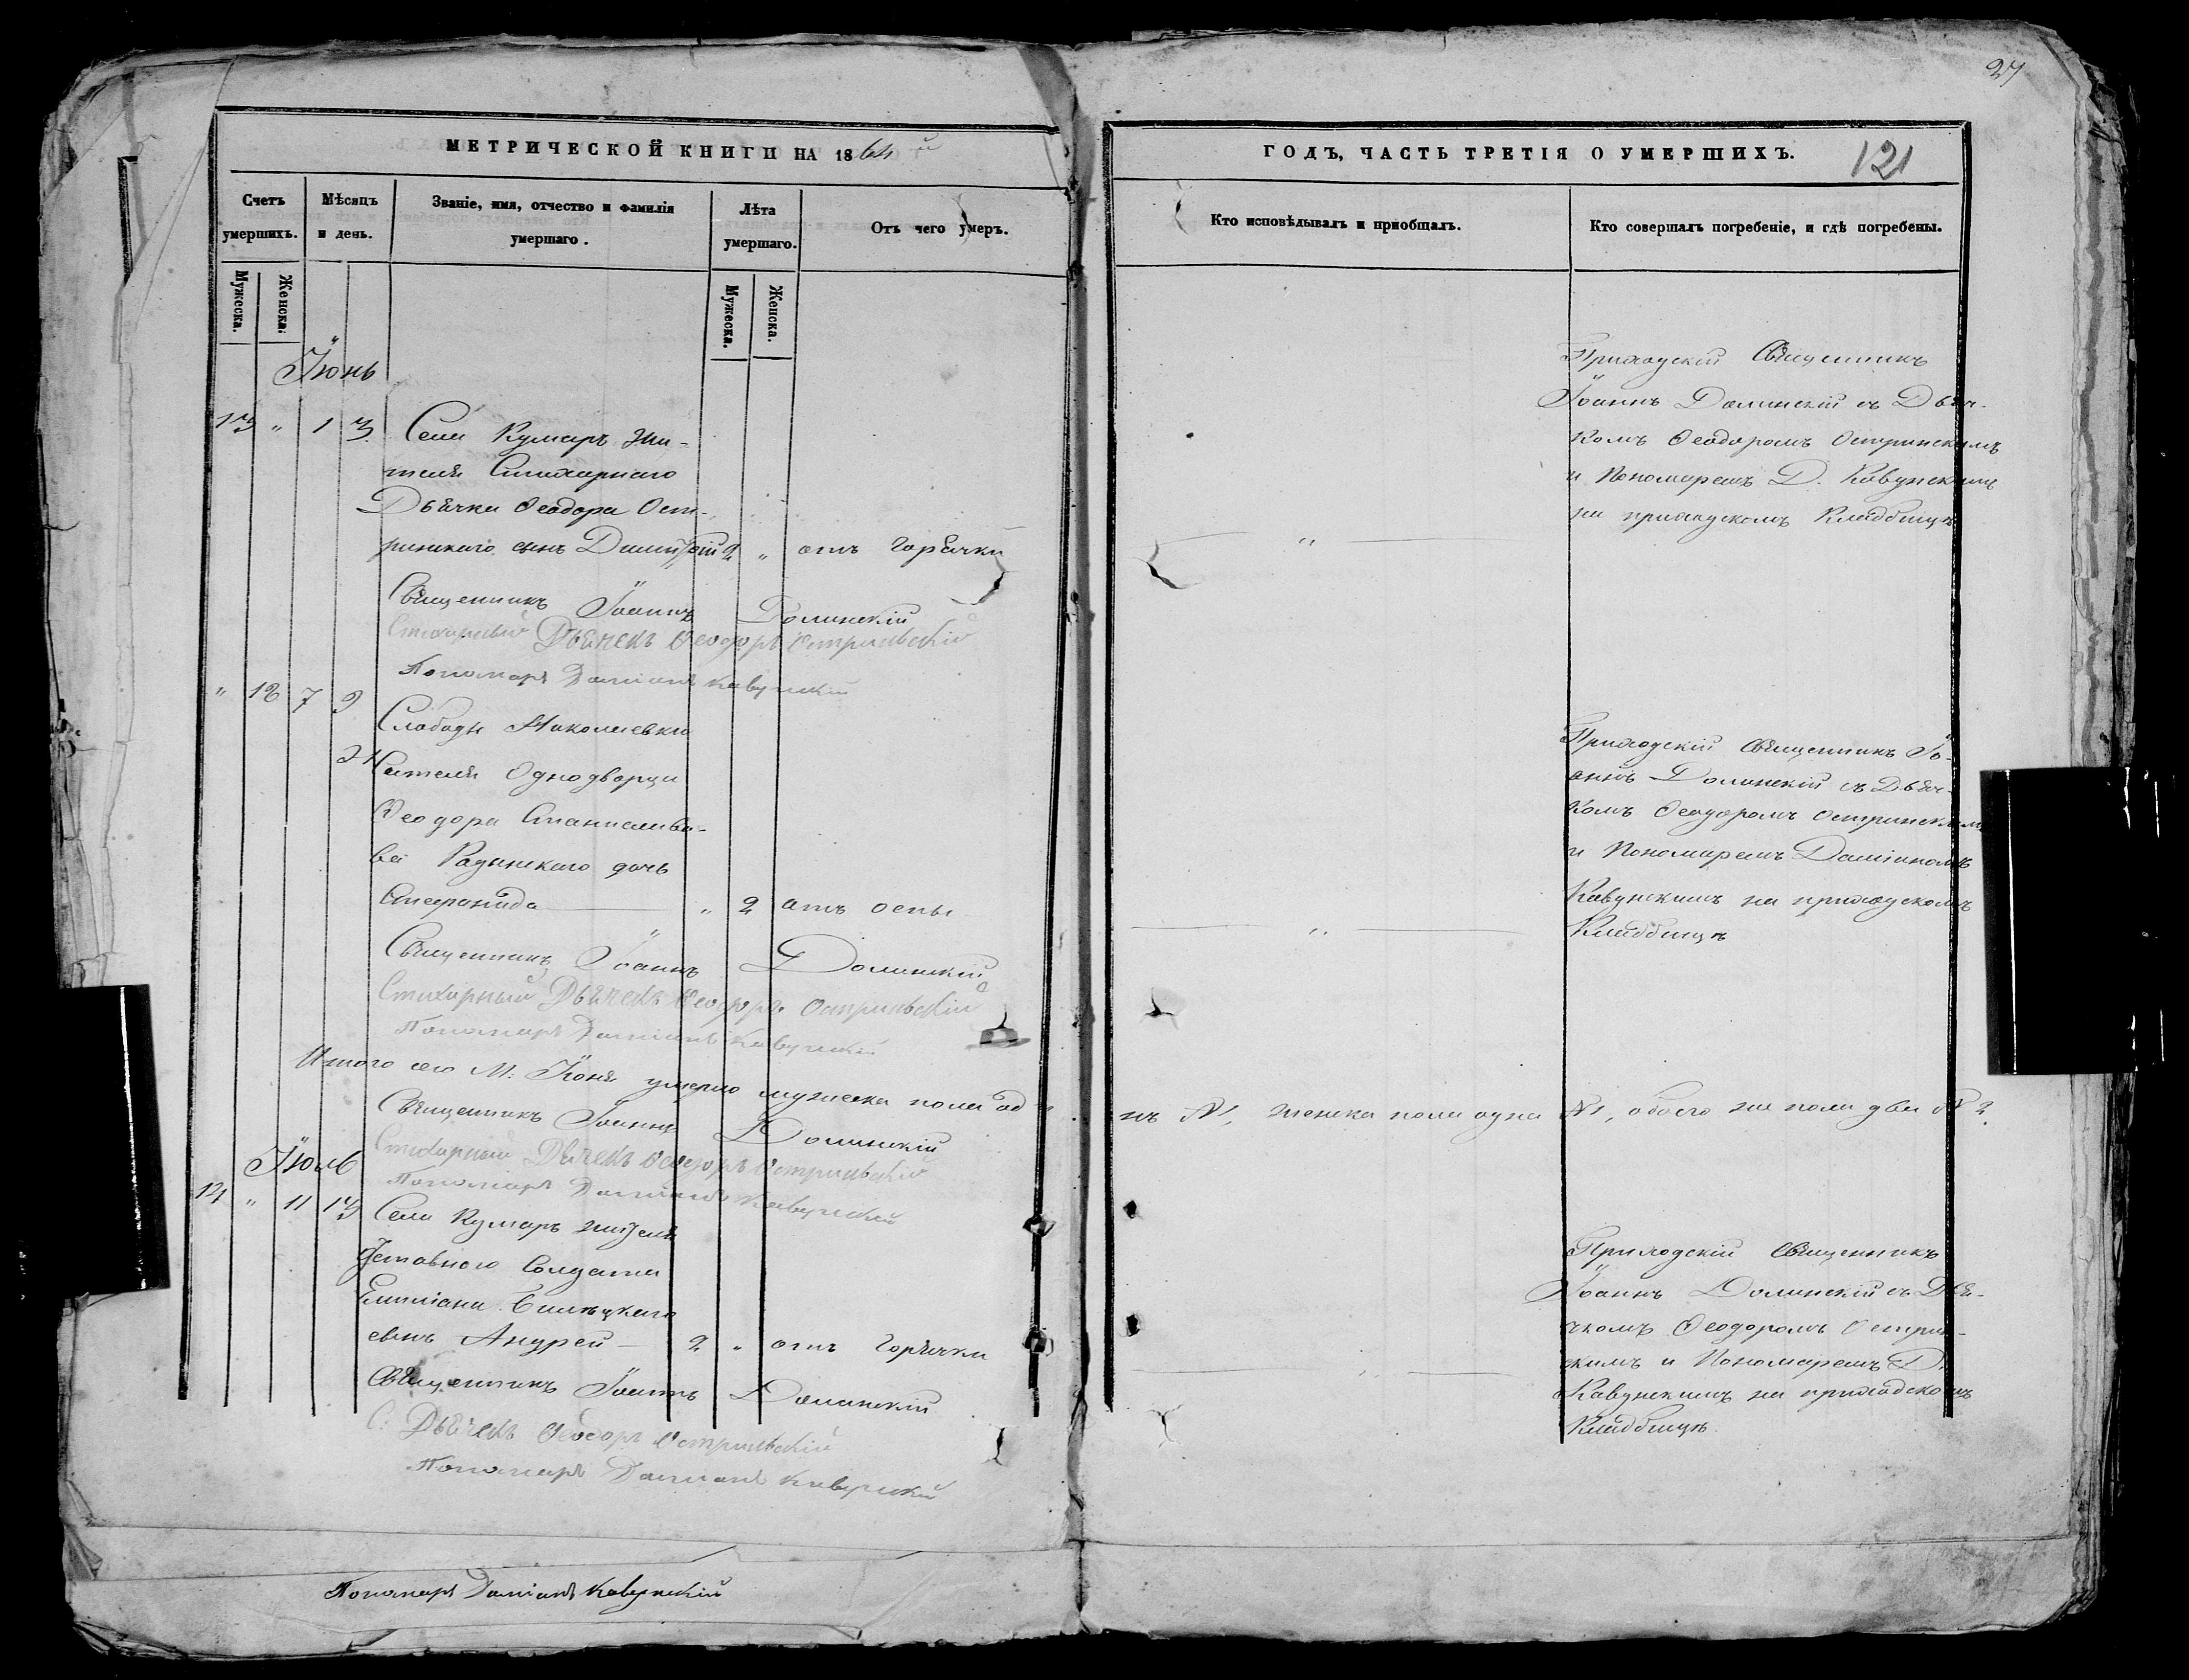 27
МЕТРИЧЕСКОЙ КНИГИ НА 1864й
ГОДЪ, ЧАСТЬ ТРЕТІЯ О УМЕРШИХЪ.
121
Счетъ умершихъ.
Мѣсяцъ и день.
Званіе, имя, отчество и фамилія умершаго.
Лѣта умершаго.
Отъ чего умеръ.
Кто исповѣдывалъ и пріобщалъ.
Кто совершалъ погребеніе, и гдѣ погребены.
Мужеска.
Женска:
Мужеска.
Женска.
Іюнь
13 " 1 3 Села Кумаръ жи-
теля Стихарнаго
Дьячка Ѳеодора Ост-
ринскаго сынъ Димитрій 2 " отъ горячки
Приходскій Священникъ
Іоаннъ Долинскій съ Дьяч-
комъ Ѳеодоромъ Остринскимъ
и Пономаремъ Д. Кавунскимъ
на приходскомъ Кладбищѣ
Священникъ Іоаннъ Долинскій
Стихарный Дьячекъ Ѳеодоръ Остриньскій
Пономарь Даміанъ Кавунскій
" 12 7 9
Слободы Николаевки
жителя Однодворца
Ѳеодора Станиславо-
ва Радынскаго дочь
Стефанида " 2 отъ оспы
Приходскій Священникъ Іо-
аннъ Долинскій съ Дьяч-
комъ Ѳеодоромъ Остринскимъ
и Пономаремъ Даміаномъ
Кавунскимъ на приходскомъ
Кладбищѣ
Священникъ Іоаннъ Долинскій
Стихарный Дьячекъ Ѳеодоръ Остриньскій
Пономарь Даміанъ Кавунскій
Итого сего М: Іюня умерло мужеска пола од
нъ № 1, женска пола одна № 1, обоего же пола два № 2.
Священникъ Іоаннъ Долинскій
Стихарный Дьячекъ Ѳеодоръ Остриньскій
Пономарь Даміанъ Кавунскій
Іюль
14 " 11 13 Села Кумаръ жителя
Солдата
Емиліана
сынъ Андрей 2 " отъ горячки
Приходскій Священникъ
Іоаннъ Долинскій съ Дья-
чкомъ Ѳеодоромъ Острин-
скимъ и Пономаремъ Д.
Кавунскимъ на приходскомъ
Кладбищѣ.
Священникъ Іоаннъ Долинскій
С. Дьячекъ Ѳеодоръ Остриньскій
Пономарь Даміанъ Кавунскій
Пономарь Даміанъ Кавунскій